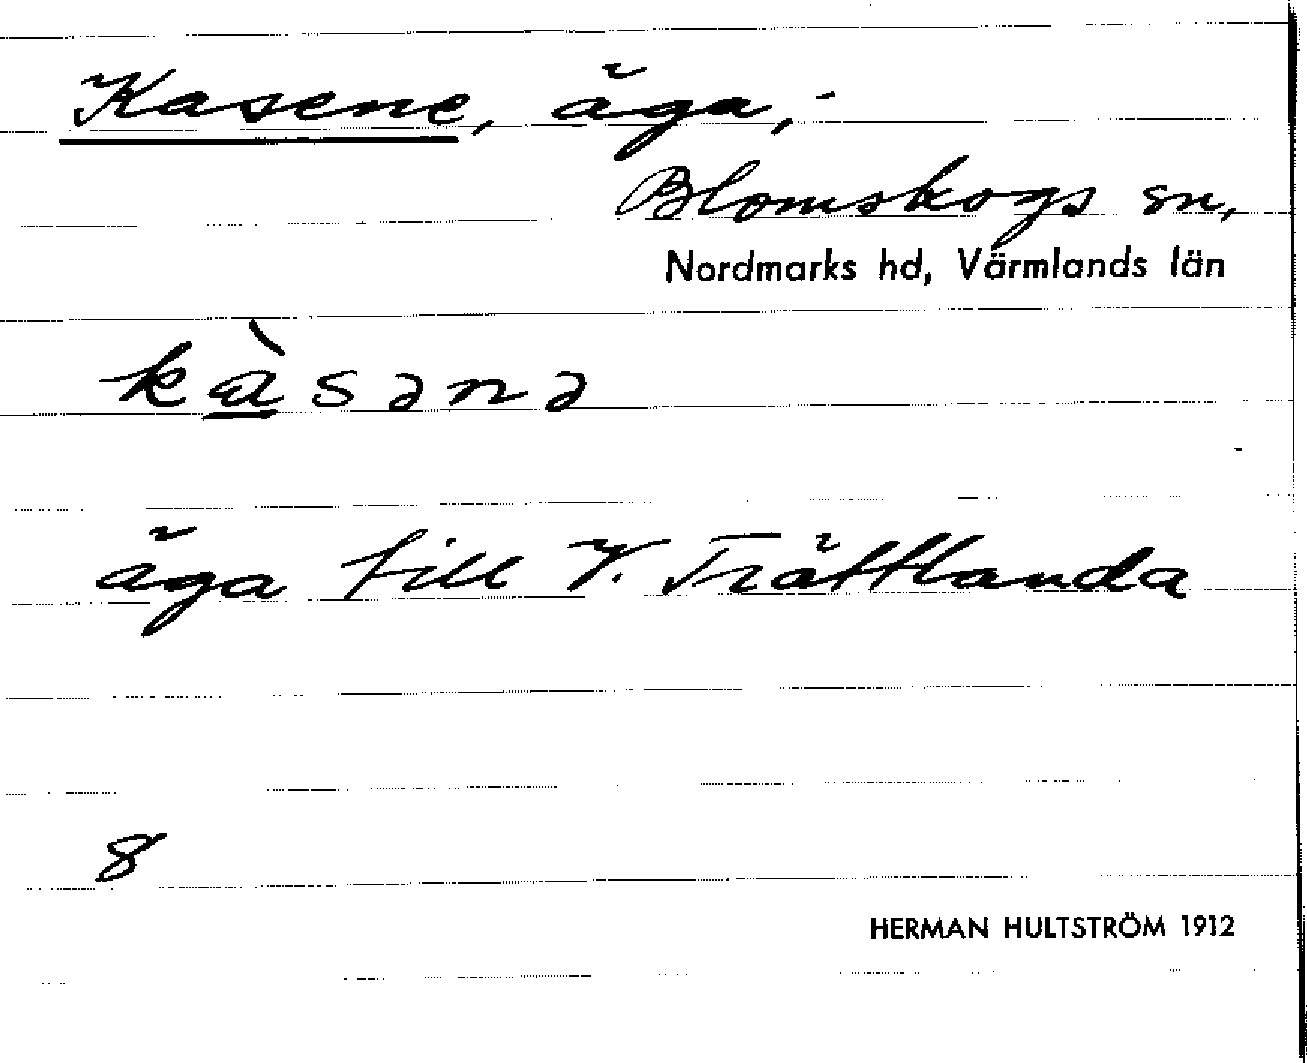 Kasene, äga,
Blomskogs sn,
Nordmarks hd, Värmlands län
kàsənə
äga till V. Trättlanda
8
HERMAN HULTSTRÖM 1912